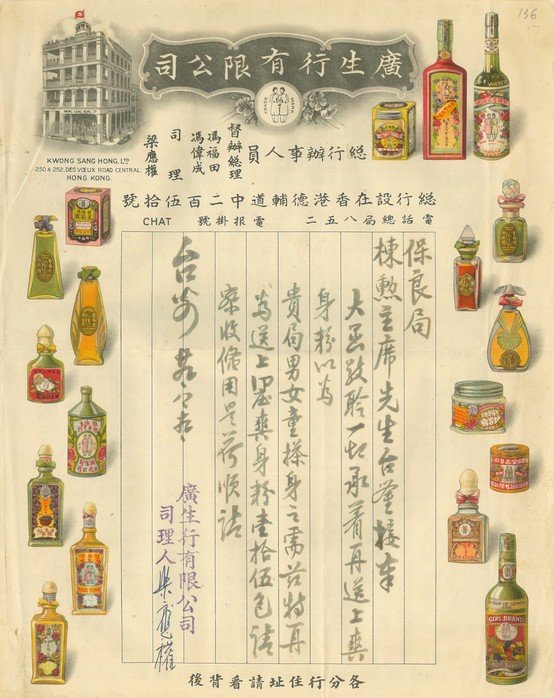 156
廣生行有限公司
KWONG SANG HONG, LTD
250 & 252, DES VŒUX ROAD CENTRAL
HONG KONG.
總行辦事人員
督辦總理
馮福田
馮偉成
司理
梁應權
總行設在香港德輔道中二百伍拾號
電話總局八五二 電報掛號 CHAT
保良局
棟勲主席先生台鑒接奉
大函致聆一切承着再送上爽
身粉以為
貴局男女童搽身之需茲特再
為送上爽身粉壹拾伍包請
察收備用是荷順請
台安
廣生行有限公司
司理人梁應權
各分行住址請看背後
GIRL BRAND